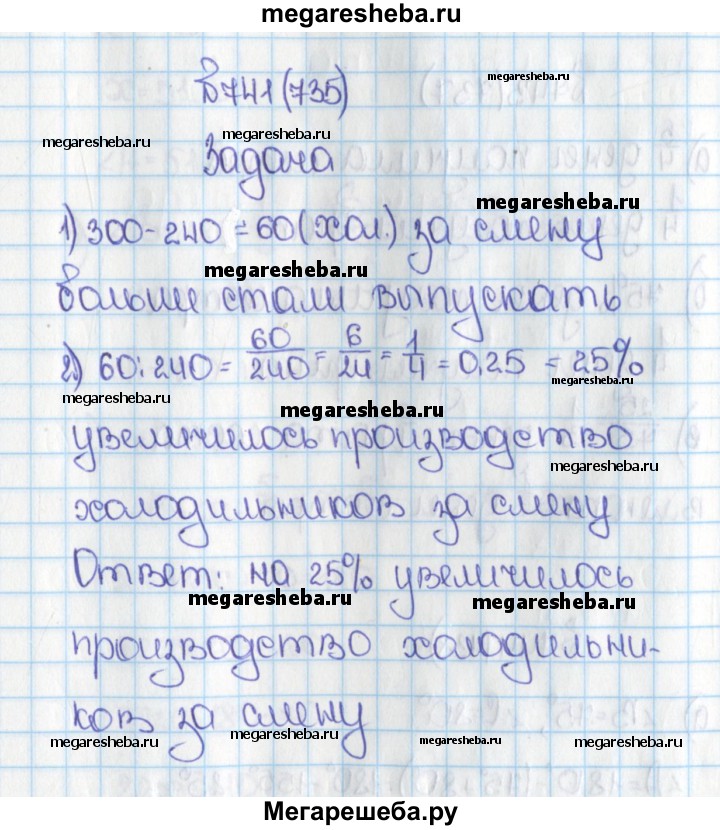 megaresheba.ru
В741(735)
megaresheba.ru
megaresheba.ru
megaresheba.ru
Задача
megaresheba.ru
1) 300-240=60(хол.) за смену
megaresheba.ru
больше стали выпускать
2) 60:240=60/240=6/24=1/4=0,25=25%
megaresheba.ru
megaresheba.ru
megaresheba.ru
увеличилось производство
megaresheba.ru
холодильников за смену
Ответ: на 25% увеличилось
megaresheba.ru
megaresheba.ru
производство холодильни-
ков за смену
megaresheba.ru
megaresheba.ru
megaresheba.ru
megaresheba.ru
Мегарешеба.ру